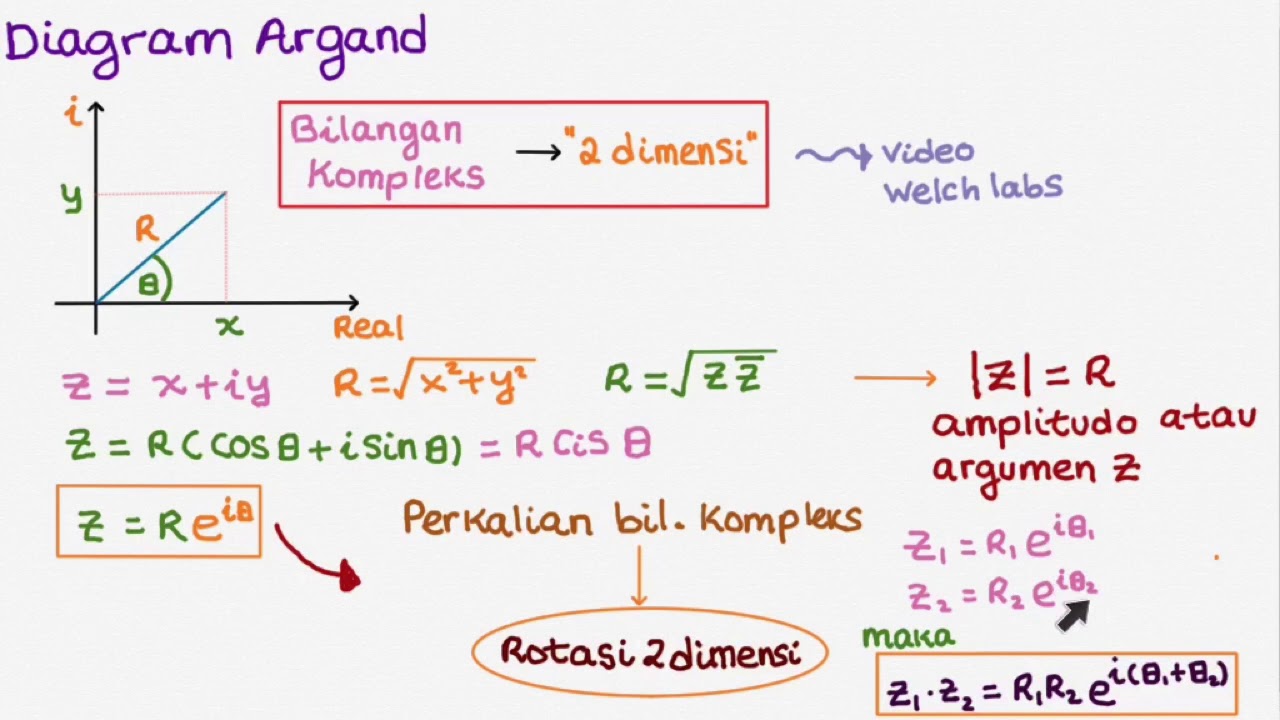 Diagram Argand
i
Bilangan
Kompleks → "2 dimensi"
video
welch labs
y
R
θ
x
Real
z = x+iy
R = √x²+y²
R = √z z̅
|z| = R
amplitudo atau
argumen z
z = R(cosθ + i sinθ) = R cis θ
z = R e^{iθ}
Perkalian bil. Kompleks
Rotasi 2 dimensi
z₁ = R₁ e^{iθ₁}
z₂ = R₂ e^{iθ₂}
maka
z₁·z₂ = R₁R₂ e^{i(θ₁+θ₂)}